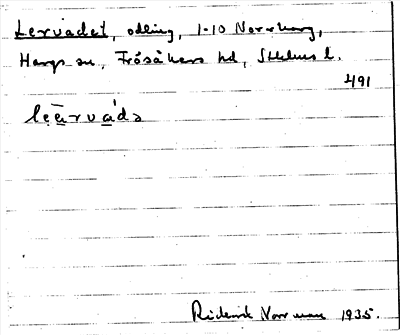 Lervadet, odling, 1-10 Norrskarg,
Hargs sn, Frösåkers hd, Sthlms l.
491
learvadə
Norrman 1935.